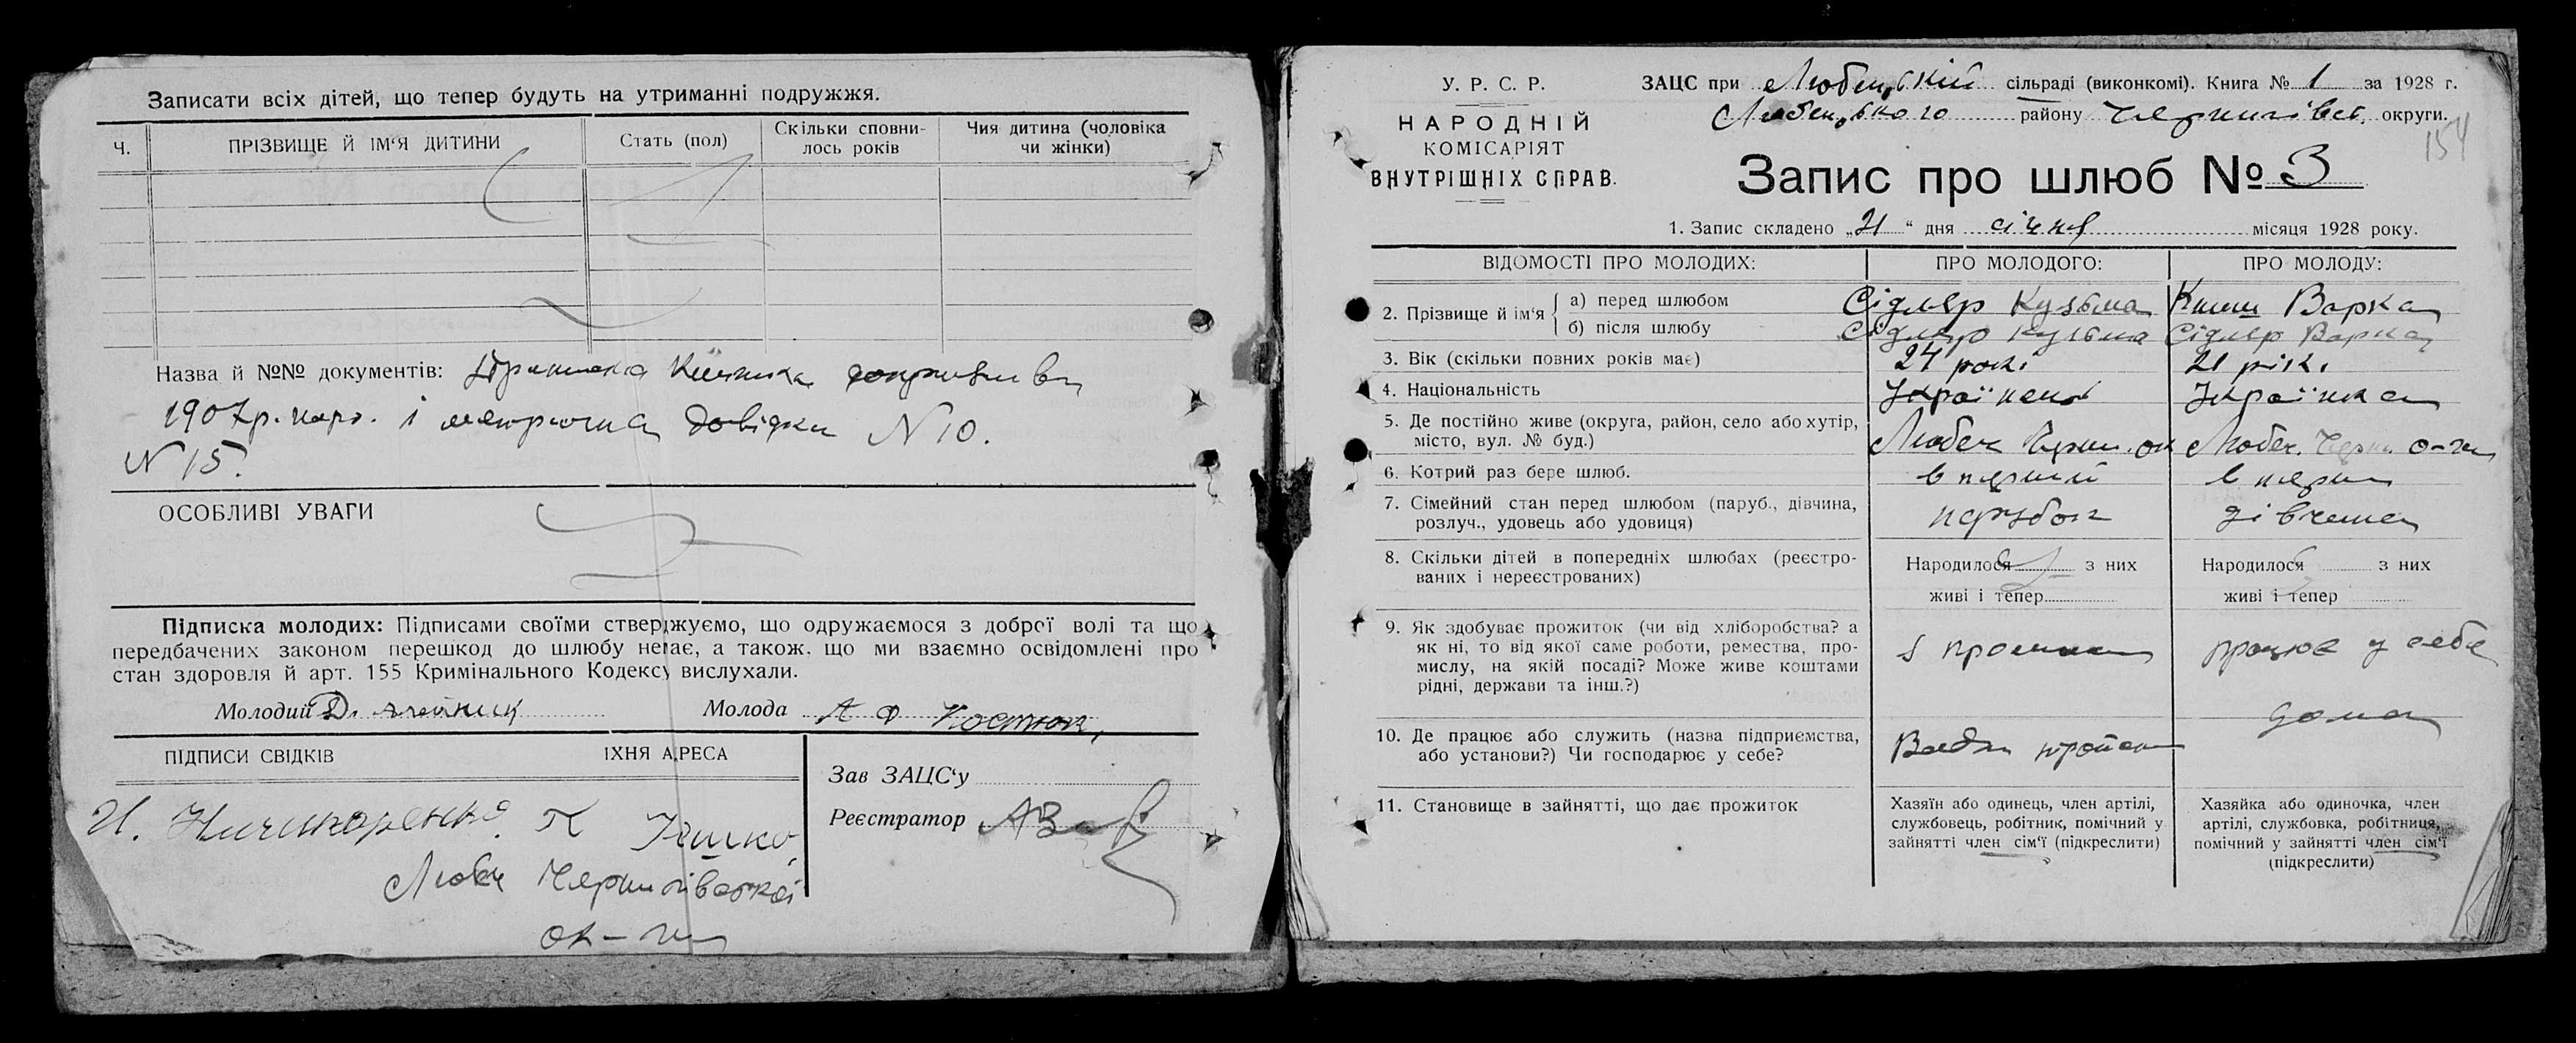 Записати всіх дітей, що тепер будуть на утриманні подружжя.
Ч.
ПРІЗВИЩЕ Й ІМ‘Я ДИТИНИ
Стать (пол)
Скільки сповни-
лось років
Чия дитина (чоловіка
чи жінки)
Назва й №№ документів:
1907 р. нар. і метрична довідка N 10.
N 15.
ОСОБЛИВІ УВАГИ
Підписка молодих: Підписами своїми стверджуємо, що одружаємося з доброї волі та що
передбачених законом перешкод до шлюбу немає, а також, що ми взаємно освідомлені про
стан здоровля й арт. 155 Кримінального Кодексу вислухали.
Молодий
Молода А Ф Костюк
ПІДПИСИ СВІДКІВ
ЇХНЯ АДРЕСА
И. Ничипоренко
Любеч Чернигівської
ок-ги
Зав ЗАЦС‘у
Реєстратор
У. Р. С. Р.
НАРОДНІЙ
КОМІСАРІЯТ
ВНУТРІШНІХ СПРАВ.
ЗАЦС при Любецькій сільраді (виконкомі). Книга № 1 за 1928 г.
Любецького району Чернигівськ. округи.
154
Запис про шлюб № 3
1. Запис складено „21“ дня січня місяця 1928 року.
ВІДОМОСТІ ПРО МОЛОДИХ:
ПРО МОЛОДОГО:
ПРО МОЛОДУ:
2. Прізвище й ім‘я
а) перед шлюбом
Сідляр Кузьма
Варка
б) після шлюбу
Сідляр Кузьма
Сідляр Варка
3. Вік (скільки повних років має)
24 роки
21 рік
4. Національність
Українець
Українка
5. Де постійно живе (округа, район, село або хутір,
місто, вул. № буд.)
Любеч Черни. ок
Любеч. Черн. о-ги
6. Котрий раз бере шлюб.
в перший
в перши
7. Сімейний стан перед шлюбом (паруб., дівчина,
розлуч., удовець або удовиця)
парубок
дівчина
8. Скільки дітей в попередніх шлюбах (реєстро-
ваних і нереєстрованих)
Народилося з них
живі і тепер
Народилося з них
живі і тепер
9. Як здобуває прожиток (чи від хліборобства? а
як ні, то від якої саме роботи, ремества, про-
мислу, на якій посаді? Може живе коштами
рідні, держави та інш.?)
працює у себе
дома
10. Де працює або служить (назва підприємства,
або установи?) Чи господарює у себе?
11. Становище в зайнятті, що дає прожиток
Хазяїн або одинець, член артілі,
службовець, робітник, помічний у
зайнятті член сім‘ї (підкреслити)
Хазяйка або одиночка, член
артілі, службовка, робітниця,
помічний у зайнятті член сім‘ї
(підкреслити)